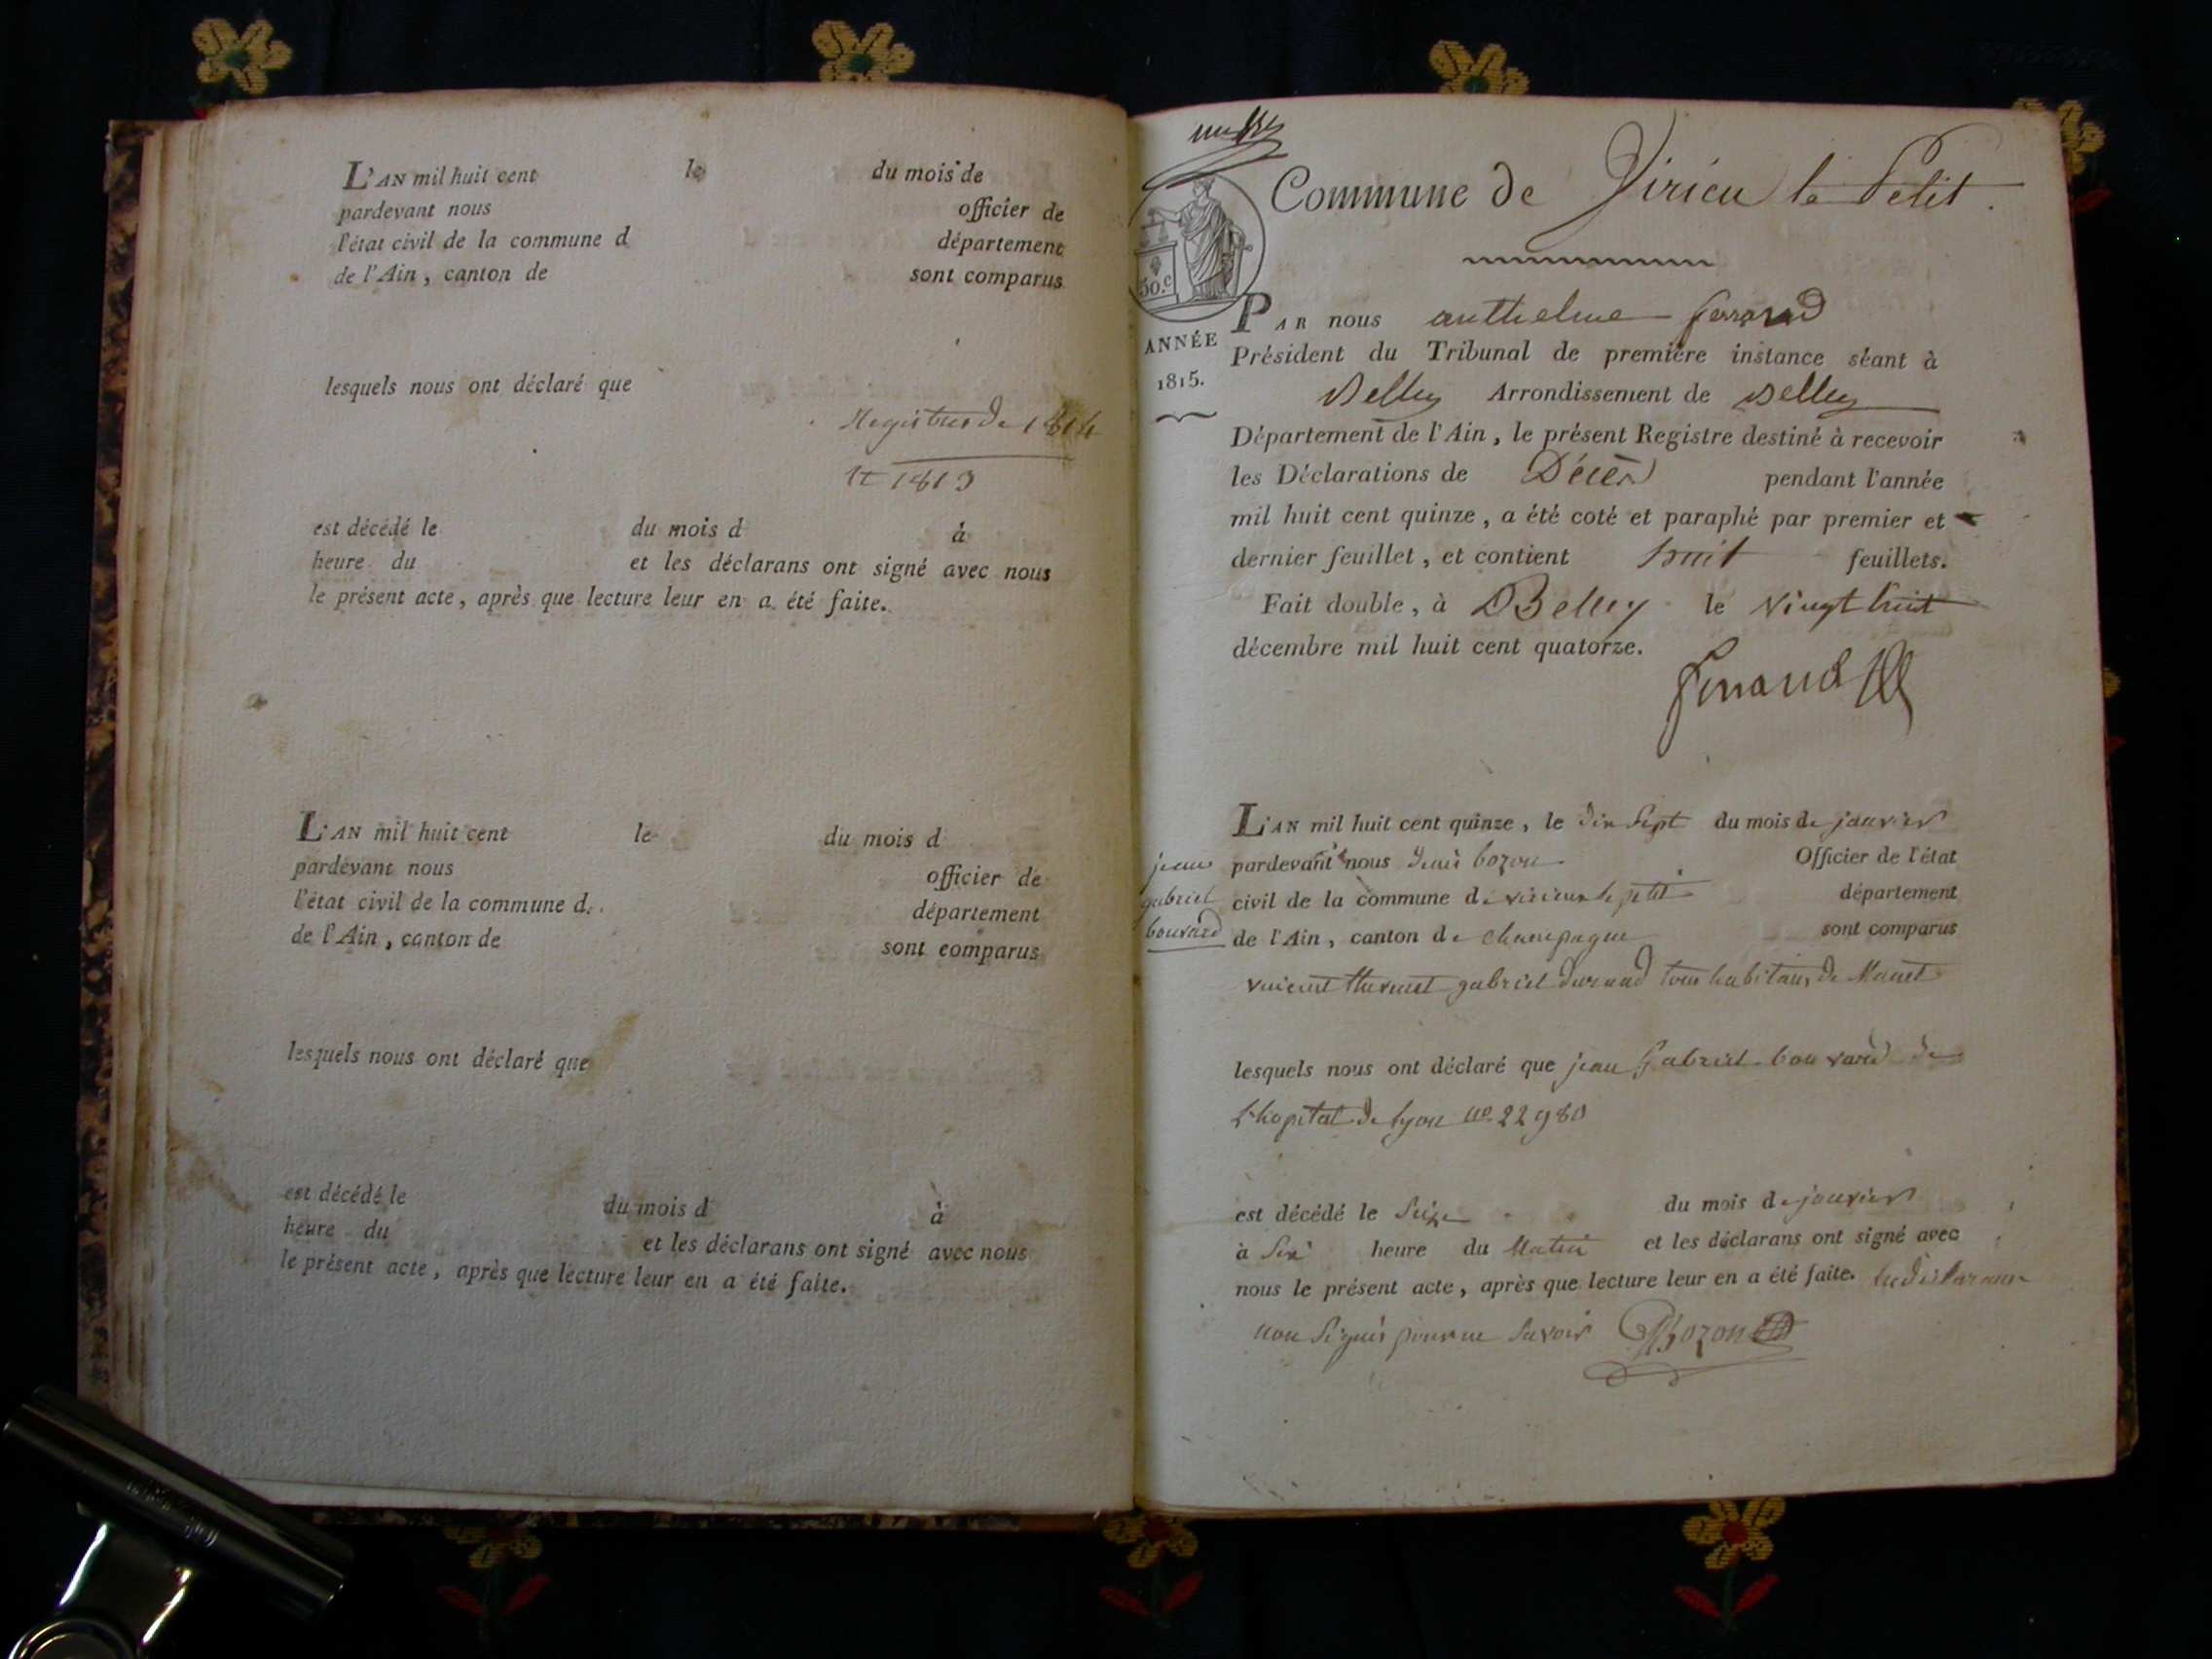 L'AN mil huit cent le du mois de
pardevant nous officier de
l'état civil de la commune d département
de l'Ain, canton de sont comparus
lesquels nous ont déclaré que
Registres de 1814
et 1813
est décédé le du mois d à
heure du et les déclarans ont signé avec nous
le présent acte, après que lecture leur en a été faite.
L'AN mil huit cent le du mois d
pardevant nous officier de
l'état civil de la commune d. département
de l'Ain, canton de sont comparus
lesquels nous ont déclaré que
est décédé le du mois d à
heure du et les déclarans ont signé avec nous
le présent acte, après que lecture leur en a été faite.
Commune de Virieu le Petit.
50.c
ANNÉE
1815.
PAR nous anthelme ferrand
Président du Tribunal de première instance séant à
Belley Arrondissement de Belley
Département de l'Ain, le présent Registre destiné à recevoir
les Déclarations de Décès pendant l'année
mil huit cent quinze, a été coté et paraphé par premier et
dernier feuillet, et contient huit feuillets.
Fait double, à Belley le vingt huit
décembre mil huit cent quatorze.
ferrand
jean
gabriel
bouvard
L'AN mil huit cent quinze, le dix sept du mois de janvier
pardevant nous bozon Officier de l'état
civil de la commune de virieux le petit département
de l'Ain, canton de champagne sont comparus
vincent gabriel durand tous habitans de
lesquels nous ont déclaré que jean gabriel bouvard de
l'hopital de lyon no 22980
est décédé le seize du mois de janvier
à six heure du Matin et les déclarans ont signé avec
nous le présent acte, après que lecture leur en a été faite. les déclarans
non signés pour ne savoir Bozon